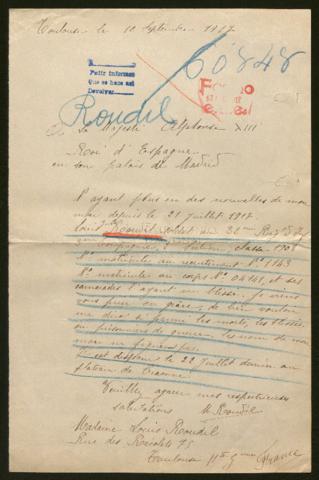 Toulouse le 10 Septembre 1917
60848
Pedir informes
Que se haga así
Devolver
Roudil
Sa Majesté Alphonse XIII
Roi d'Espagne
en son palais de Madrid
N'ayant plus eu des nouvelles de mon
mari depuis le 21 Juillet 1917.
Louis Roudil soldat au
Compagnie, classe 1908
N° matricule au recrutement N° 1143
N° matricule au corps N° 04141, et ses
camarades l'ayant vu blessé. Je viens
vous prier en grâce, de bien vouloir
me dire si parmi les morts, les blessés
ou prisonniers de guerre, le nom de mon
mari ne figure pas.
Il est disparu le 22 Juillet dernier au
plateau de Craonne
Veuillez agréer mes respectueuses
salutations M Roudil
Madame Louis Roudil
Rue des Récolets 75
Toulouse Hte Gnne France